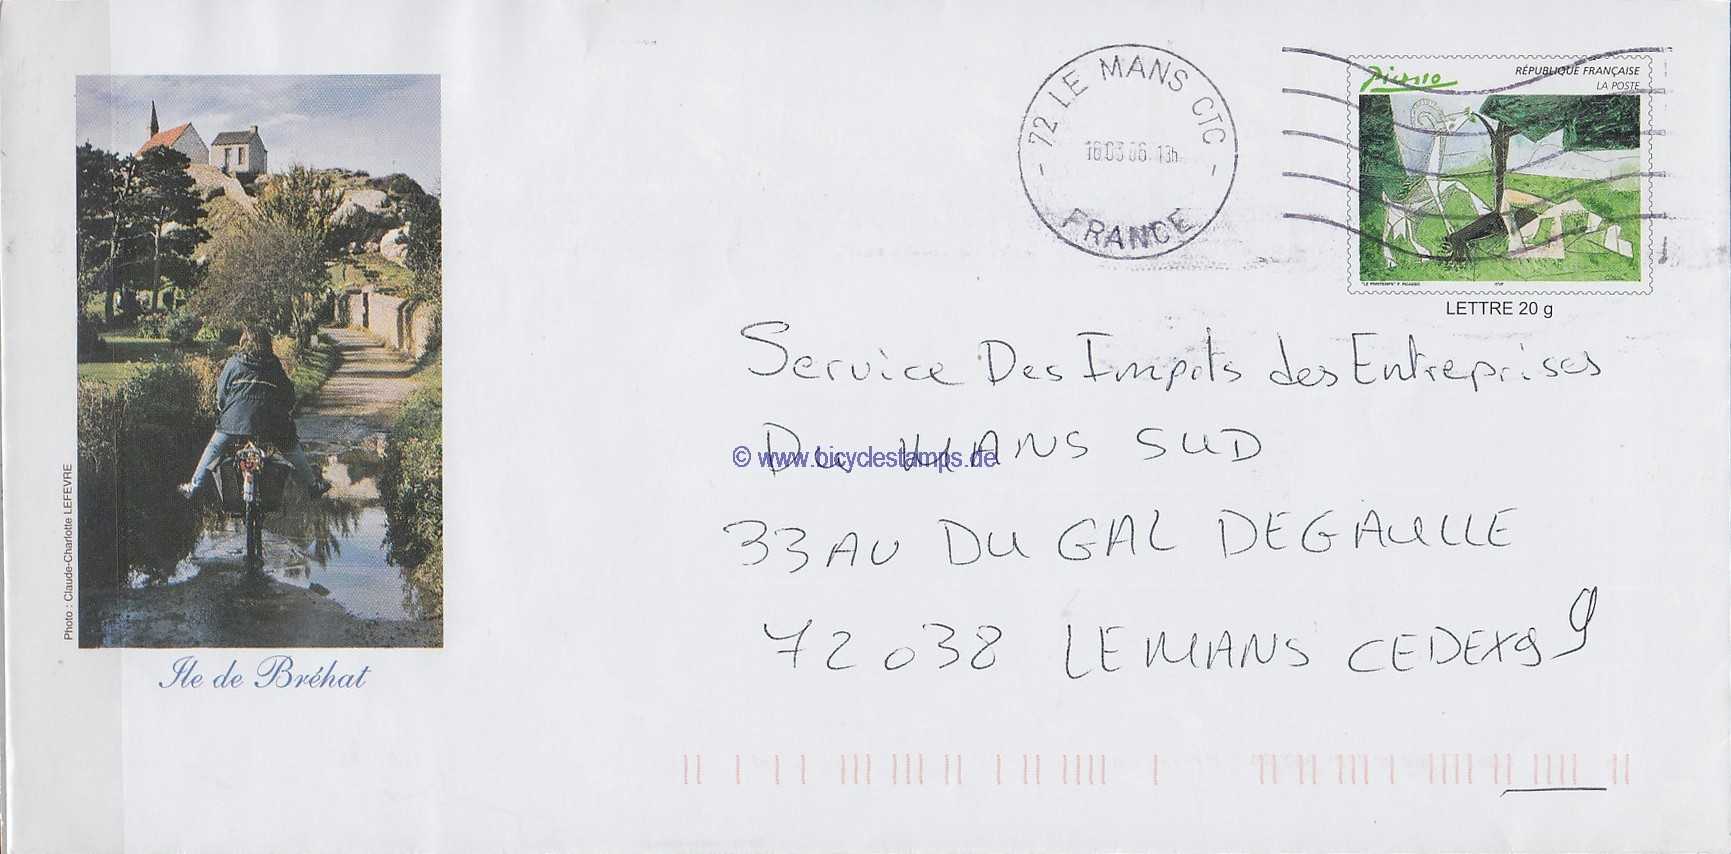 72 LE MANS CTC
16.03.06 13h
FRANCE
Picasso
RÉPUBLIQUE FRANÇAISE
LA POSTE
"LE PRINTEMPS" P. PICASSO
LETTRE 20 g
Service Des Impots des Entreprises
Du MANS SUD
© www.bicyclestamps.de
33 AU DU GAL DEGAULLE
72038 LE MANS CEDEX 9 9
Photo : Claude-Charlotte LEFEVRE
Ile de Bréhat